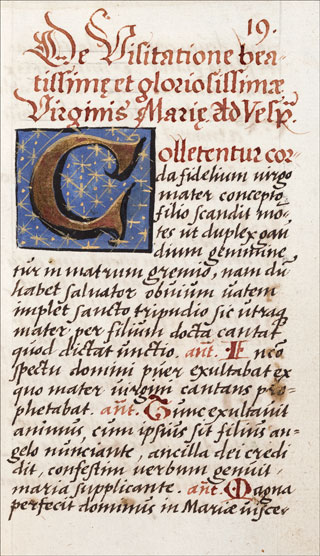 19.
De Visitatione bea-
tissimę et gloriosissimæ
Virginis Marię Ad Vesp.
Colletentur cor-
da fidelium virgo
mater concepto
filio scandit mō-
tes ut duplex gau
dium geminare-
tur in matrum gremio, nam dū
habet salvator obvium vatem
implet sancto tripudio sic utraq
mater per filium docta cantat
quod dictat unctio. ant. In cō
spectu domini puer exultabat ex
quo mater virgini cantans pro-
phetabat. ant. Tunc exultavit
animus, cum ipsius sit filius an-
gelo nunciante, ancilla dei credi
dit, confestim verbum genuit
maria supplicante. ant. Magna
perfecit dominus in Mariæ viscer